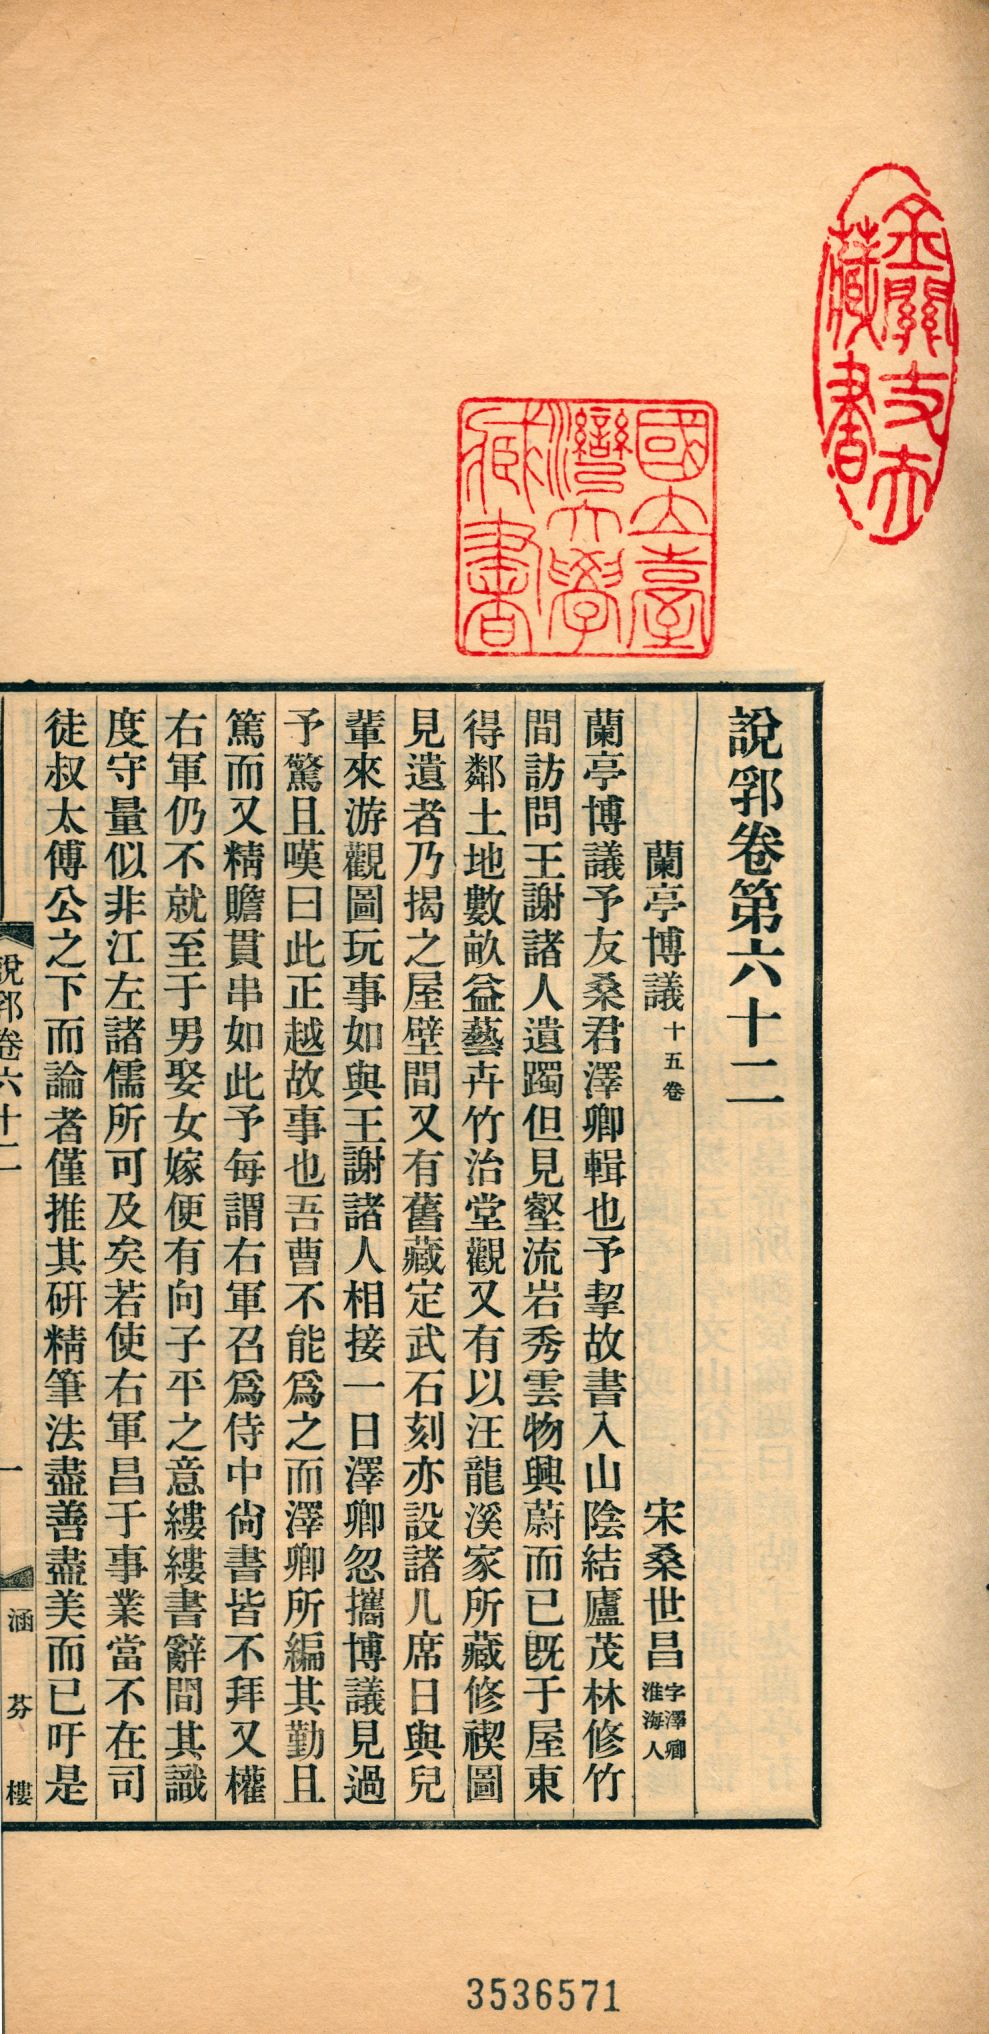 說郛卷第六十二
蘭亭博議十五卷 宋桑世昌字澤卿淮海人
蘭亭博議予友桑君澤卿輯也予挈故書入山陰結廬茂林修竹
間訪問王謝諸人遺躅但見壑流岩秀雲物興蔚而已既于屋東
得鄰土地數畝益藝卉竹治堂觀又有以汪龍溪家所藏修禊圖
見遺者乃揭之屋壁間又有舊藏定武石刻亦設諸几席日與兒
輩來游觀圖玩事如與王謝諸人相接一日澤卿忽攜博議見過
予驚且嘆曰此正越故事也吾曹不能爲之而澤卿所編其勤且
篤而又精贍貫串如此予每謂右軍召爲侍中尙書皆不拜又權
右軍仍不就至于男娶女嫁便有向子平之意縷縷書辭間其識
度守量似非江左諸儒所可及矣若使右軍昌于事業當不在司
徒叔太傅公之下而論者僅推其研精筆法盡善盡美而已吁是
說郛卷六十二 一 涵芬樓
國立臺灣大學藏書
金關丈夫藏書
3536571